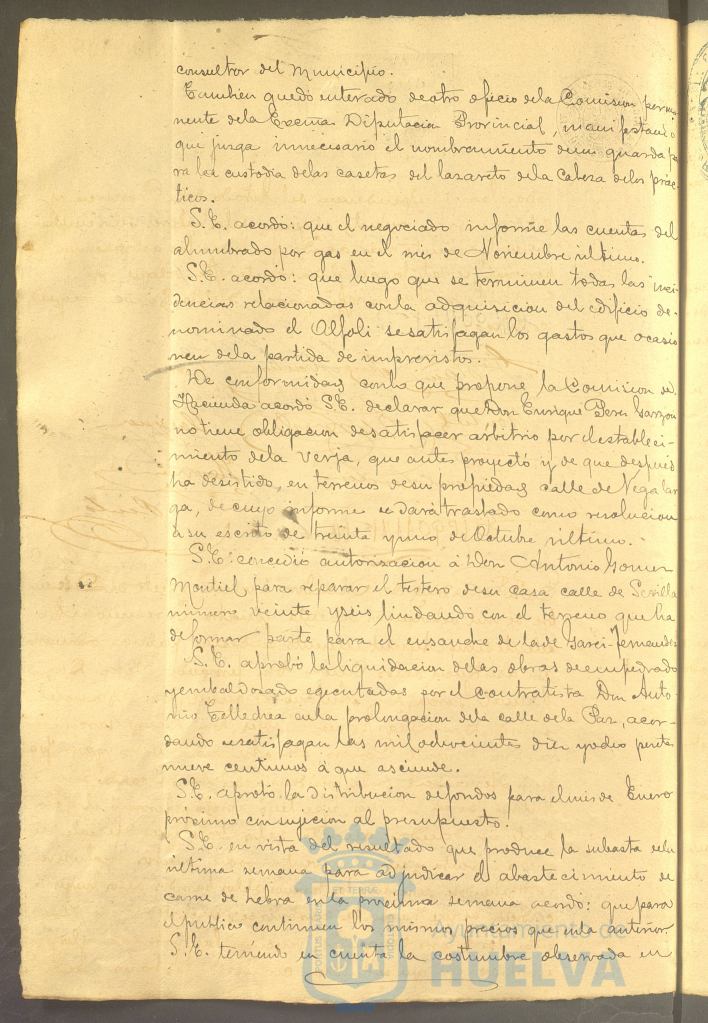 consultor del Municipio.
Tambien quedó enterado de otro oficio de la Comision perma
nente de la Excma Diputacion Provincial, manifestando
que juzga innecesario el nombramiento de un guarda pa
ra la custodia de las casetas del lazareto de la Cabeza de los prác-
ticos.
S.E. acordó: que el negociado informe las cuentas del
alumbrado por gas en el mes de Noviembre último.
S.E. acordó: que luego que se terminen todas las inci-
dencias relacionadas con la adquisicion del edificio de-
nominado el Alfoli se satisfagan los gastos que ocasio
nen de la partida de imprevistos.
De conformidad con lo que propone la Comision de
Hacienda acordó S.E. declarar que Don Enrique Perez Garzon
no tiene obligacion de satisfacer árbitrio por el estableci-
miento de la verja, que antes proyectó y de que despues
ha desistido, en terrenos de su propiedad calle de Vega lar
ga, de cuyo informe se dará traslado como resolucion
a su escrito de treinta y uno de Octubre último.
S.E. concedió autorizacion á Don Antonio Gomez
Montiel para reparar el testero de su casa calle de Sevilla
número veinte y seis lindando con el terreno que ha
de formar parte para el ensanche de la de Garci-Fernandez
S.E. aprobó la liquidacion de las obras de empedrado
y embaldosado egecutadas por el contratista Don Anto-
nio en la prolongacion de la calle de la Paz, acor-
dando se satisfagan las mil ochocientas diez y ocho pesetas
nueve centimos á que asciende.
S.E. aprobó la distribucion de fondos para el mes de Enero
próximo con sujecion al presupuesto.
S.E. en vista del resultado que produce la subasta en la
última semana para adjudicar el abastecimiento de
carne de hebra en la proxima semana acordó: que para
el publico continuen los mismos precios que en la anterior.
S.E. teniendo en cuenta la costumbre observada en
Ayuntamiento de
HUELVA